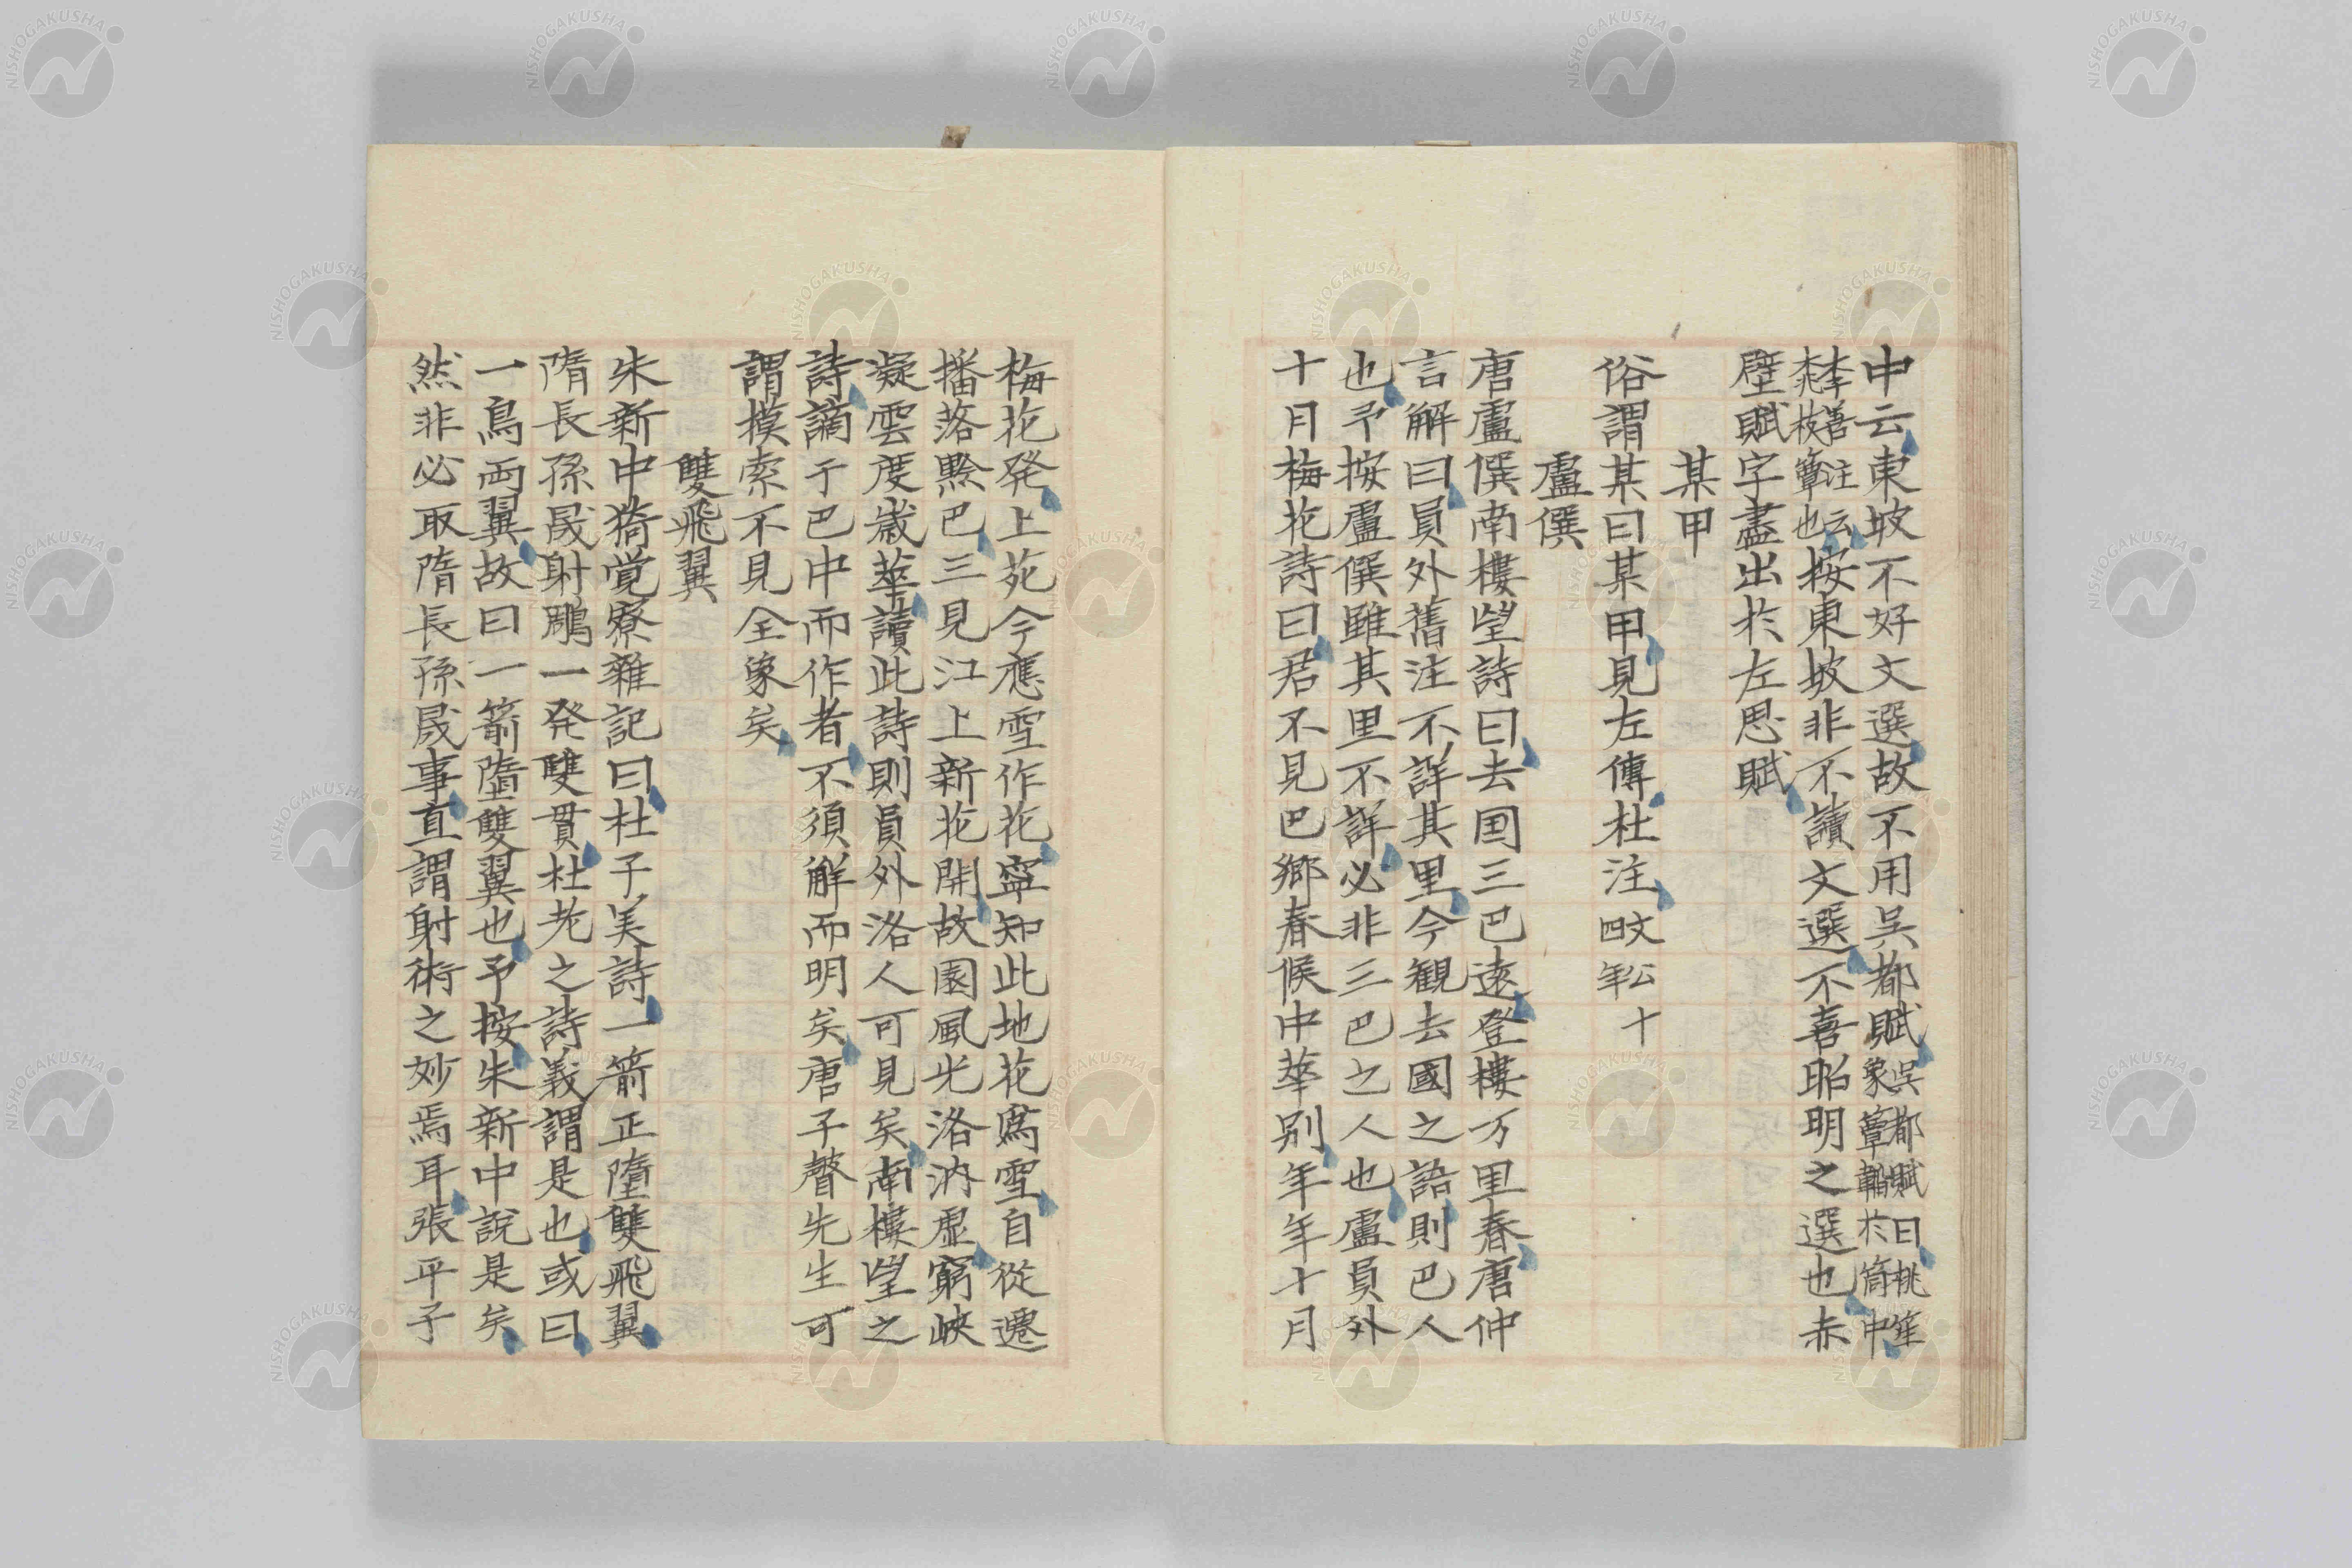 中云東坡不好文選故不用呉都賦呉都賦曰桃笙象簟韜於筒中
李善注云桃枝簟也按東坡非不讀文選不喜昭明之選也赤
壁賦字盡出於左思賦
某甲
俗謂某曰某甲見左傳杜注文公十四年
盧僎
唐盧僎南樓望詩曰去国三巴遠登樓万里春唐仲
言解曰員外舊注不詳其里今観去國之語則巴人
也予按盧僎雖其里不詳必非三巴之人也盧員外
十月梅花詩曰君不見巴郷春候中華別年年十月
梅花発上苑今應雪作花寧知此地花爲雪自從遷
播落黔巴三見江上新花開故園風光洛汭虚窮峽
凝雲度歳華讀此詩則員外洛人可見矣南樓望之
詩謫于巴中而作者不須解而明矣唐子瞽先生可
謂摸索不見全象矣
雙飛翼
朱新中猗覚寮雜記曰杜子美詩一箭正墮雙飛翼
隋長孫晟射鵰一発雙貫杜老之詩義謂是也或曰
一鳥両翼故曰一箭墮雙翼也予按朱新中說是矣
然非必取隋長孫晟事直謂射術之妙焉耳張平子
NISHOGAKUSHA